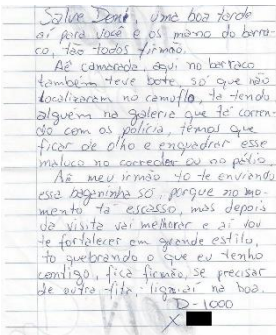 Salve Dent, uma boa tarde
aí para você e os mano do barra-
co, tão todos firmão.
Aê camarada, aqui no barraco
também teve bote, só que não
localizaram no camuflo, tá tendo
alguém na galeria que tá corren-
do com os polícia, temos que
ficar de olho e enquadrar esse
maluco no corredor ou no pátio.
Aê meu irmão tô te enviando
essa baganinha só, porque no mo-
mento tá escasso, mas depois
da visita vai melhorar e aí vou
te fortalecer em grande estilo,
tô quebrando o que eu tenho
contigo, fica firmão, se precisar
de outra fita, liga aí na boa.
D-1000
X: